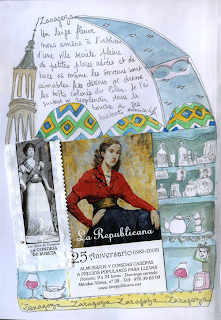 Zaragoza
Un large fleuve
nous amène à l'intérieur
d'une ville secrète pleine
de petites places aérées et de
cafés où même les serveurs sont
aimables. Là-dessus se dresse
les toits colorés du Pilar. Je l'ai
surtout
la
des
habitants
La Republicana
25 Aniversario (1983-2008)
ALMUERZOS Y COMIDAS CASERAS
A PRECIOS POPULARES PARA LLEVAR
Horario: 9 a 24 horas - Domingo cerrado
Méndez Núñez, nº 38 - Telf. 976 39 65 09
LA CONDESA
DE BURETA
Zaragoza Zaragoza Zaragoza Zaragoza